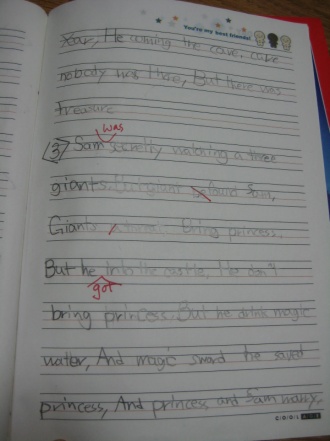 You're my best friends!
He coming the cave, cave
nobody was there, But there was
treasure
was
③ Sam secretly watching a three
giants. But giant is found Sam,
Giants bring princess.
But he into the castle, He don't
got
bring princess. But he drink magic
water, And magic sword he saved
princess, And princess, and Sam marry.
COOL